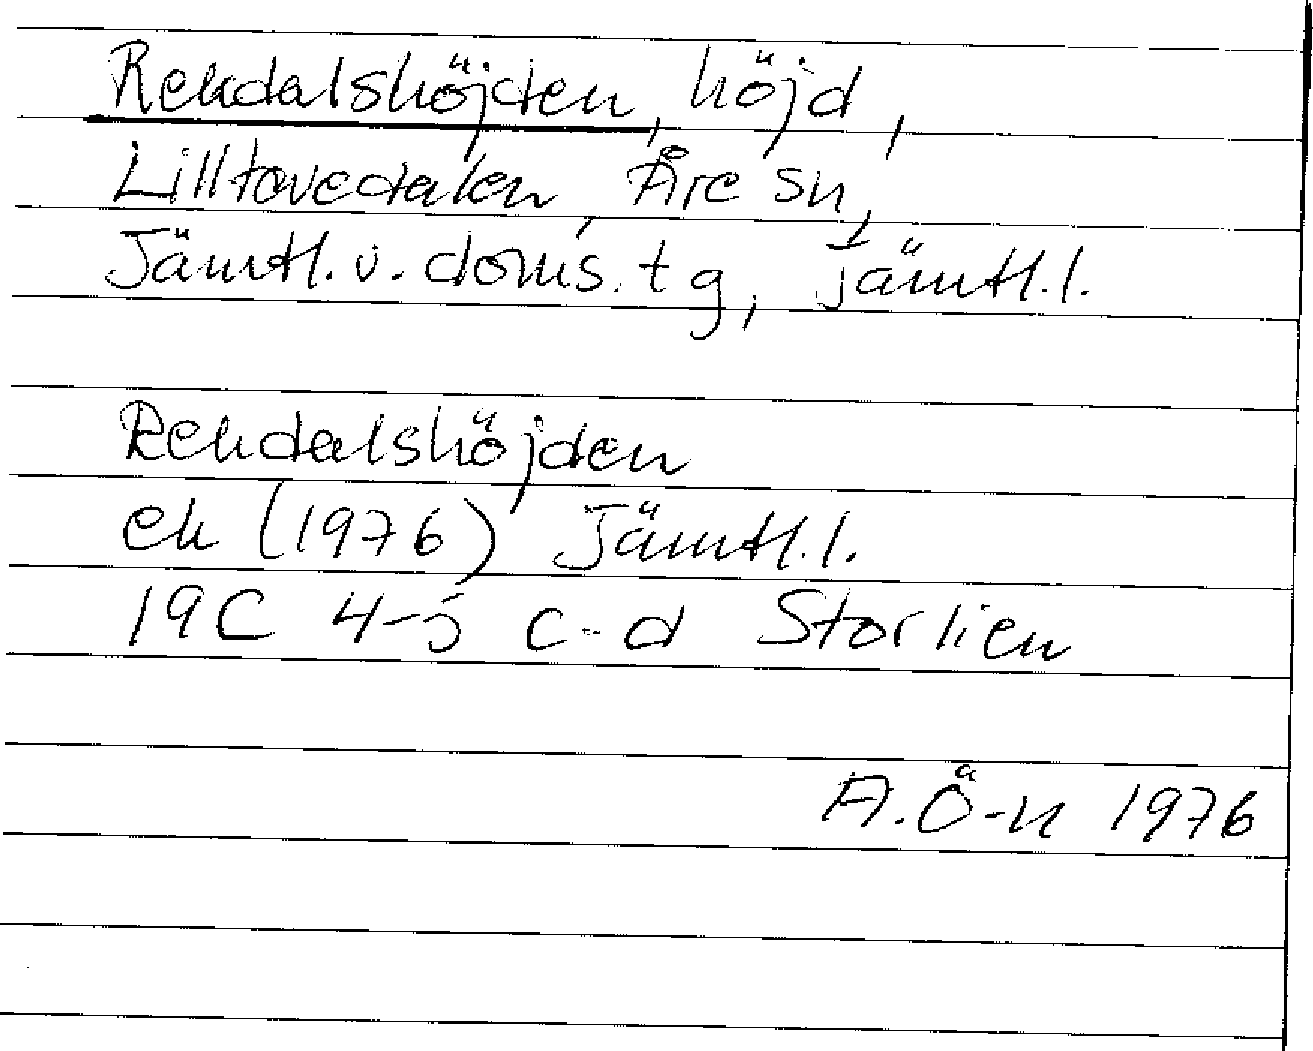 Rendalshöjden, höjd,
Lilltovedalen, Åre sn,
Jämtl. v. doms. tg, Jämtl. l.
Rendalshöjden
ek (1976) Jämtl. l.
19C 4-5 c-d Storlien
A. Ö-n 1976